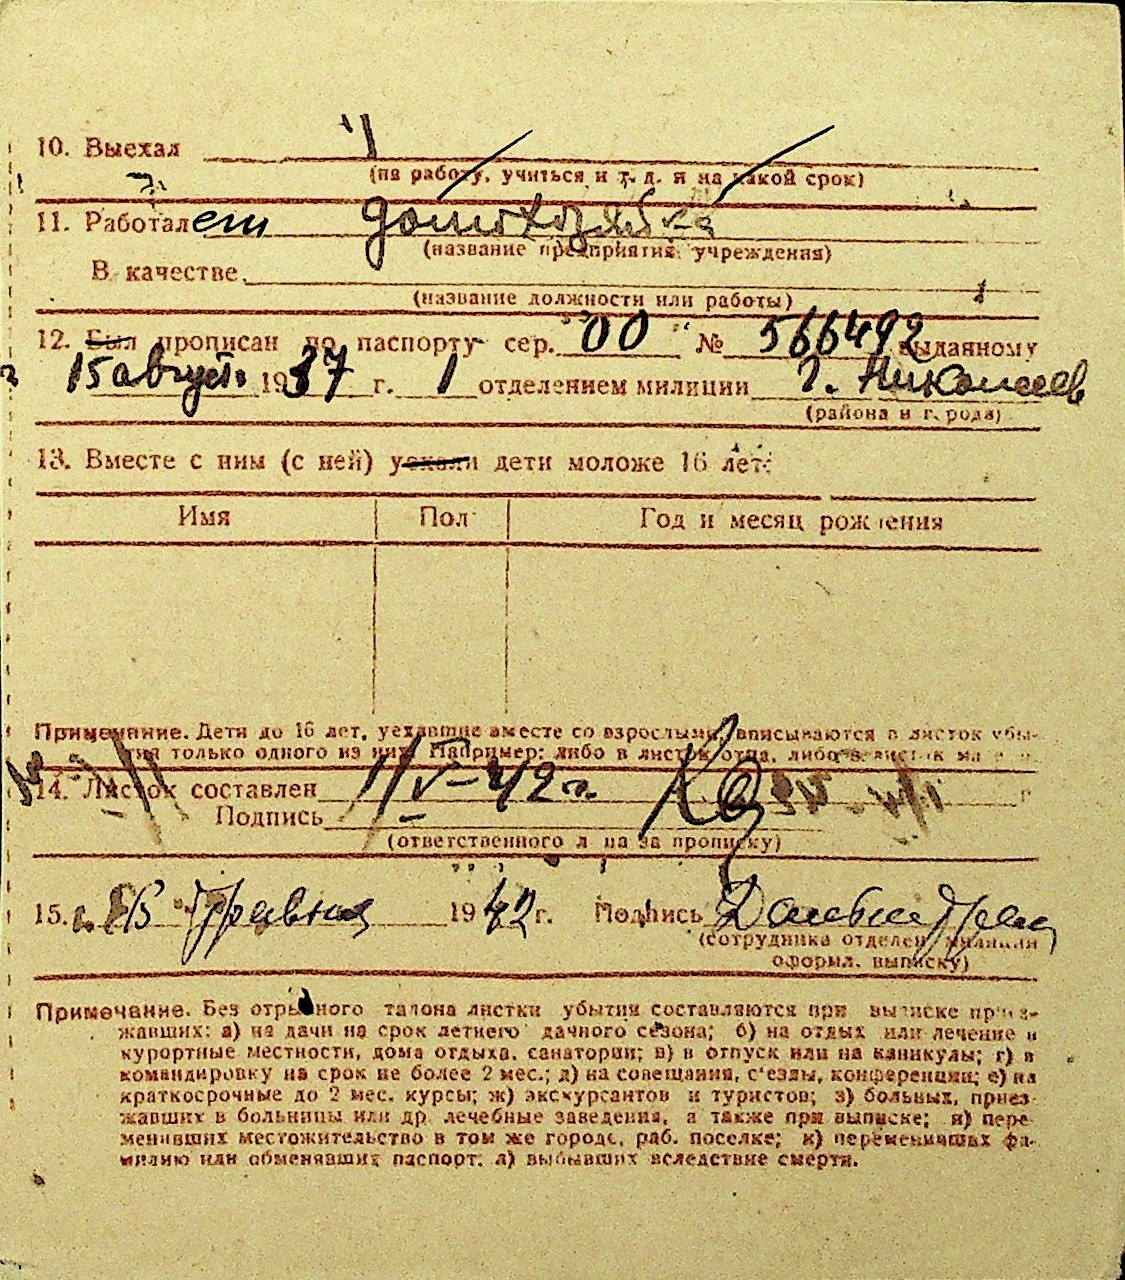 10. Выехал
(на работу, учиться и т. д. и на какой срок)
11. Работал ет домохозяйка
(название предприятия, учреждения)
В качестве
(название должности или работы)
12. Был прописан по паспорту сер. "00" № 566492 выданному
15 августа 1937 г. 1 отделением милиции г. Николаев
(района и города)
13. Вместе с ним (с ней) уехали дети моложе 16 лет:
Имя Пол Год и месяц рождения
Примечание. Дети до 16 лет, уехавшие вместе со взрослыми, вписываются в листок убы-
тия только одного из них. Например: либо в листок отца, либо в листок
14. Листок составлен 1/V-42 г.
Подпись
(ответственного лица за прописку)
15. 1942 г. Подпись
(сотрудника отделен. милиции
оформл. выписку)
Примечание. Без отрывного талона листки убытия составляются при выписке приез-
жавших: а) на дачи на срок летнего дачного сезона; б) на отдых или лечение в
курортные местности, дома отдыха, санатории; в) в отпуск или на каникулы; г) в
командировку на срок не более 2 мес.; д) на совещания, с'езды, конференции; е) на
краткосрочные до 2 мес. курсы; ж) экскурсантов и туристов; з) больных, приез-
жавших в больницы или др. лечебные заведения, а также при выписке; и) пере-
менивших местожительство в том же городе, раб. поселке; к) переменивших фа-
милию или обменявших паспорт; л) выбывших вследствие смерти.